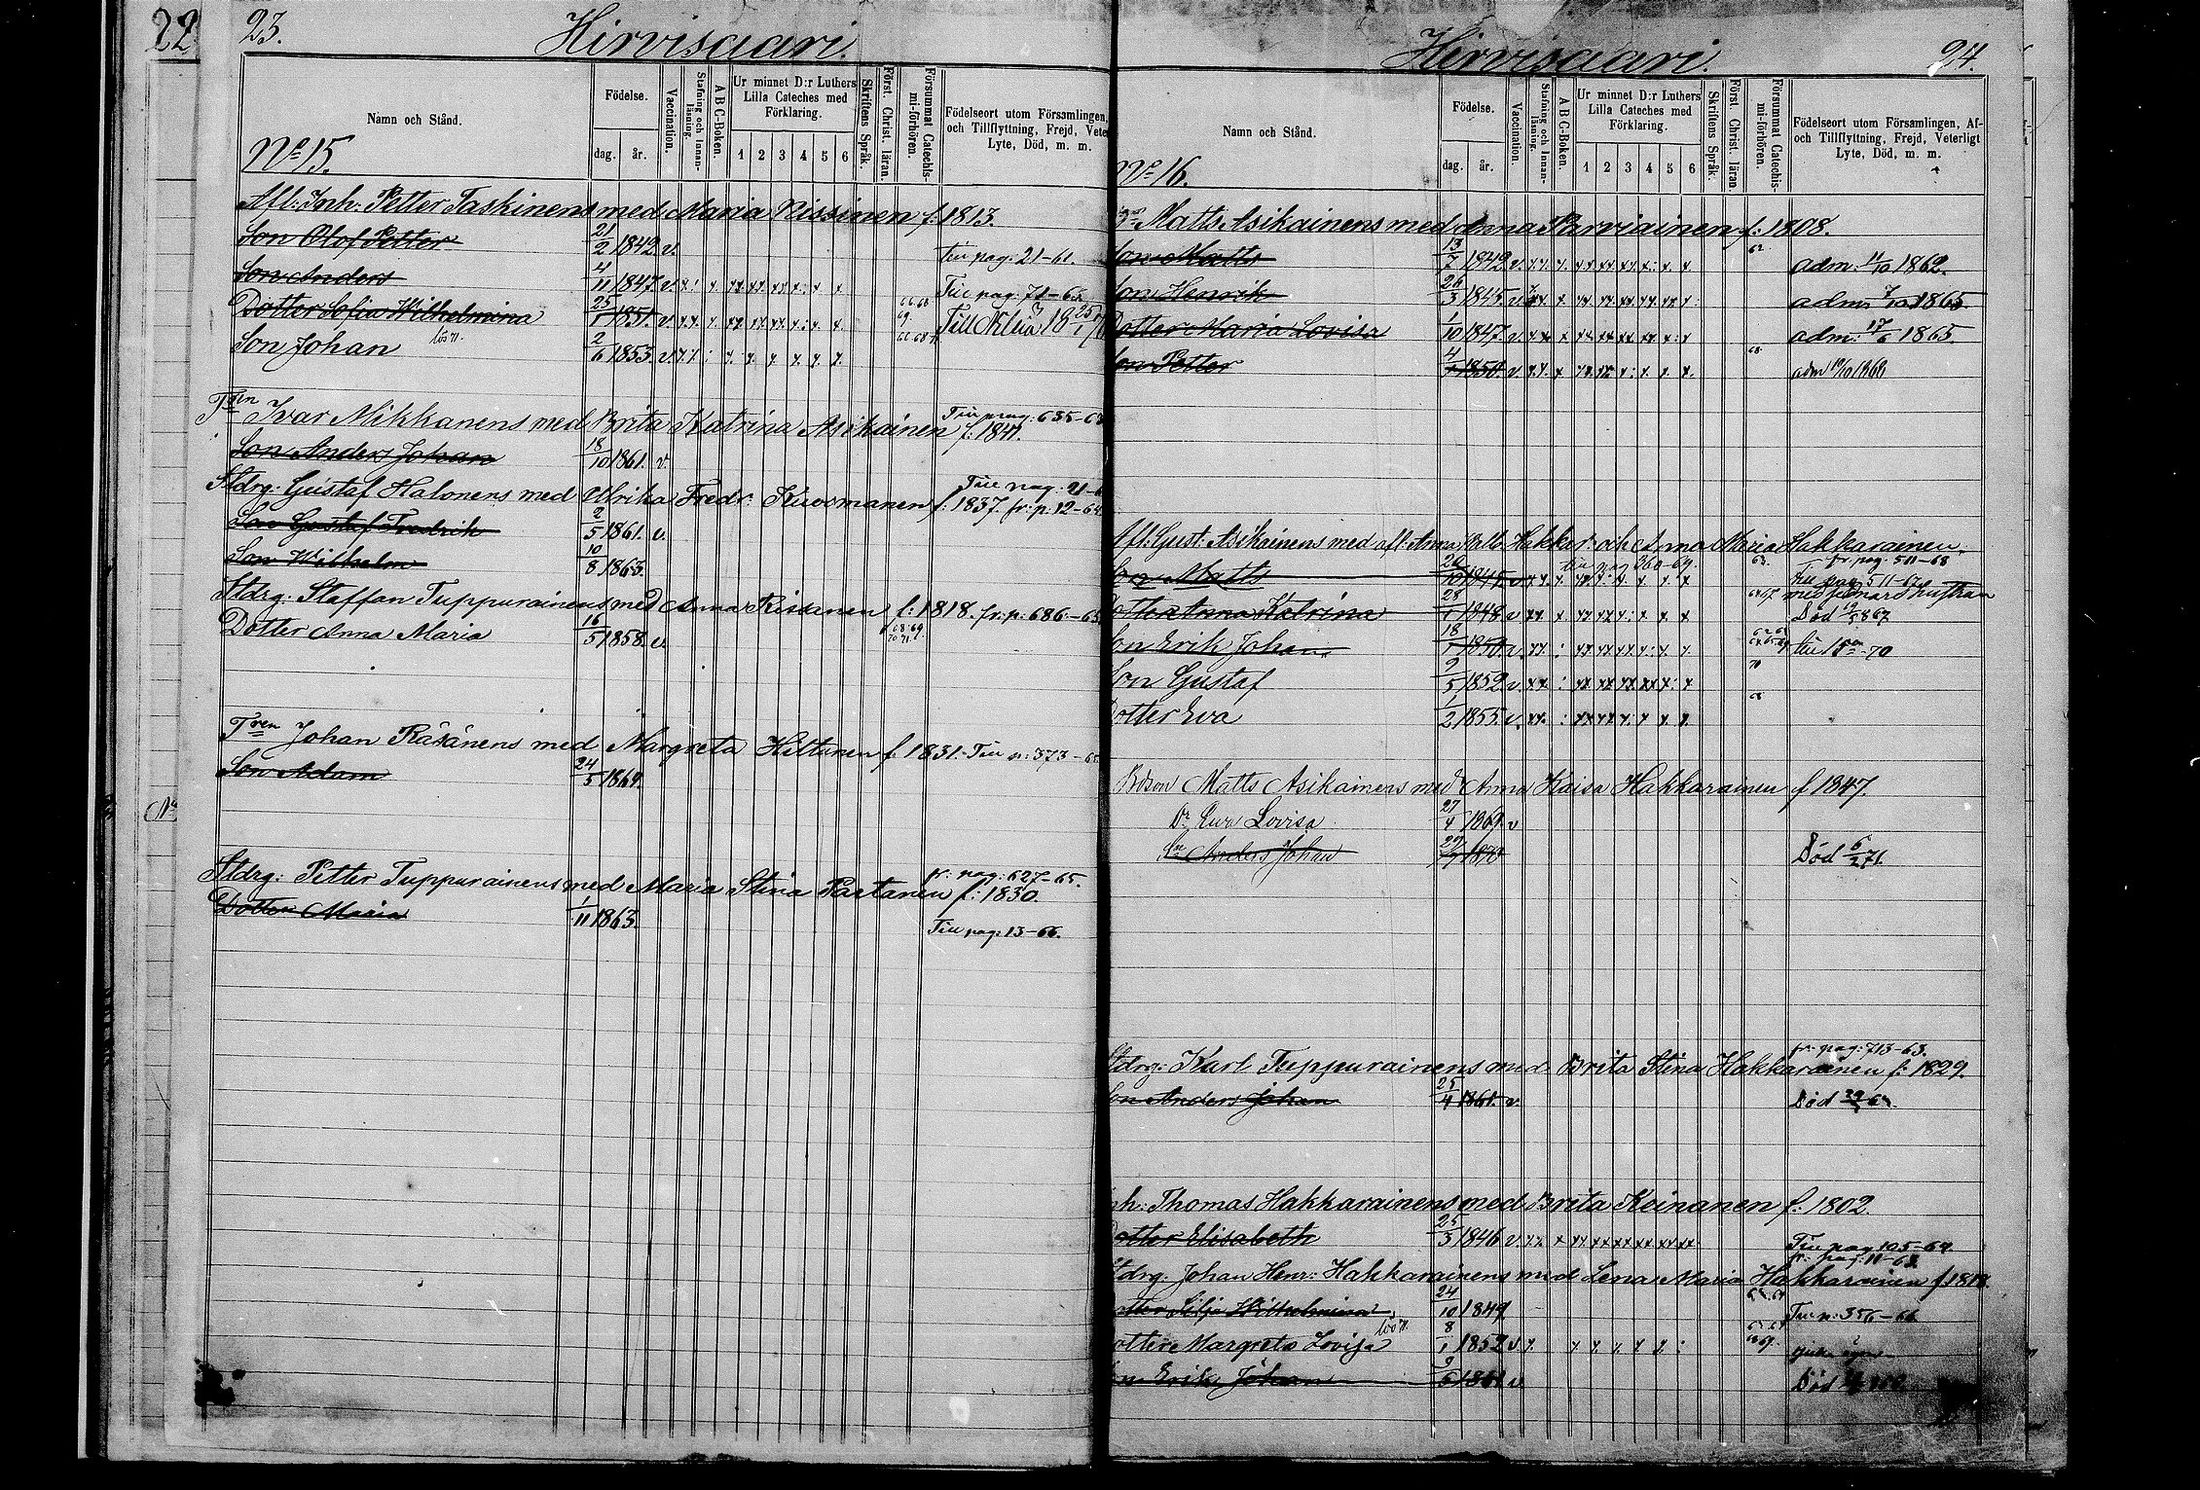 22
23.
Hirvisaari.
Namn och Stånd.
Födelse.
dag. år.
Vaccination.
Stafning och Innanläsning.
A B C-Boken.
Ur minnet D:r Luthers Lilla Cateches med Förklaring.
1 2 3 4 5 6
Skriftens Språk.
Först. Christ. läran.
Försummat Catechismi-förhören.
Födelseort utom Församlingen,
och Tillflyttning, Frejd, Vete
Lyte, Död, m. m.
No 15.
Afl: Inh: Petter Taskinens med Maria Nissinen f: 1813.
Son Olof Petter 21/2 1842 v. Till pag: 21-61
Son Anders 4/11 1847. v. Till pag: 71-65
Dotter Sofia Wilhelmina 25/1 1851. v. 66.68 69. Till
Son Johan lös 71. 2/6 1853. v.
Tren Ivar Mikkanens med Brita Katrina Asikainen f: 1841. Till pag: 635-
Son Anders Johan 18/10 1861. v.
Stdrg: Gustaf Halonens med Ulrika Fredr: Kuosmanen f: 1837. fr: p: 12-64. Till pag: 21-
Son Gustaf Fredrik 2/5 1861. v.
Son Wilhelm 10/8 1863.
Stdrg: Staffan Tuppurainens med Anna Rissanen f: 1818. fr: p: 686-65
Dotter Anna Maria 16/5 1858. v. 68.69. 70 71.
Tren Johan Räsänens med Margreta Hiltunen f. 1831. Till p: 373-65
Son Adam 24/5 1864.
fr: pag: 627-65.
Stdrg: Petter Tuppurainens med Maria Stina Partanen f: 1830.
Dotter Maria 1/11 1863. Till pag: 13-66.
Hirvisaari.
24.
Namn och Stånd.
Födelse.
dag. år.
Vaccination.
Stafning och Innanläsning.
A B C-Boken.
Ur minnet D:r Luthers Lilla Cateches med Förklaring.
1 2 3 4 5 6
Skriftens Språk.
Först. Christ. läran.
Försummat Catechismi-förhören.
Födelseort utom Församlingen, Af-
och Tillflyttning, Frejd, Veterligt
Lyte, Död, m. m.
No 16.
Matts Asikainens med Anna Parviainen f: 1808.
Son Matts 13/7 1842. v. 62 adm: 11/10 1862.
Son Henrik 26/3 1845. v. adm: 7/10 1865
Dotter Maria Lovisa 1/10 1847. v. adm: 17/6 1865.
Son Petter 4/ 1850. v. 68. adm 10/10 1868
Afl: Gust: Asikainens med afl: Anna Hakkar: och Anna Maria Hakkarainen.
fr. pag: 511-68
Son Matts 26/10 1845. v. till pag 260-69. 63. till pag: 511-67 med hustran
Dotter Anna Katrina 28/1 1848. v. Död
Son Erik Johan 18/1 1850. v. till -70
Son Gustaf 9/5 1852. v. 70
Dotter Eva 1/2 1855. v.
Bdson Matts Asikainens med Anna Kaisa Hakkarainen f 1847.
Dr Eva Lovisa 27/4 1869. v
Sn Anders Johan 1870 Död 6/2 71.
fr: pag: 713-63.
Stdrg: Karl Tuppurainens med Brita Stina Hakkarainen f: 1829.
Son Anders Johan 25/4 1861. v. Död
Inh: Thomas Hakkarainens med Brita Keinanen f: 1802.
Dotter Elisabeth 25/3 1846 v. Till pag 105-69.
fr: pag: 11-63.
Stdrg. Johan Henr: Hakkarainens med Lena Maria Hakkarainen f.
Dotter Silja Wilhelmina 24/10 1849. Till p: 356-66
Dotter Margreta Lovisa lös 71. 8/1 1852 v
Son Erik Johan 9/5 1861 v Död